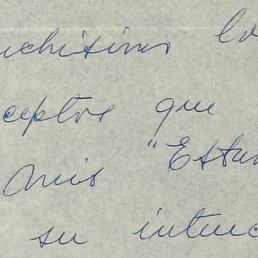 uchísimo lo
ceptos que
mis "Estu
su intenc